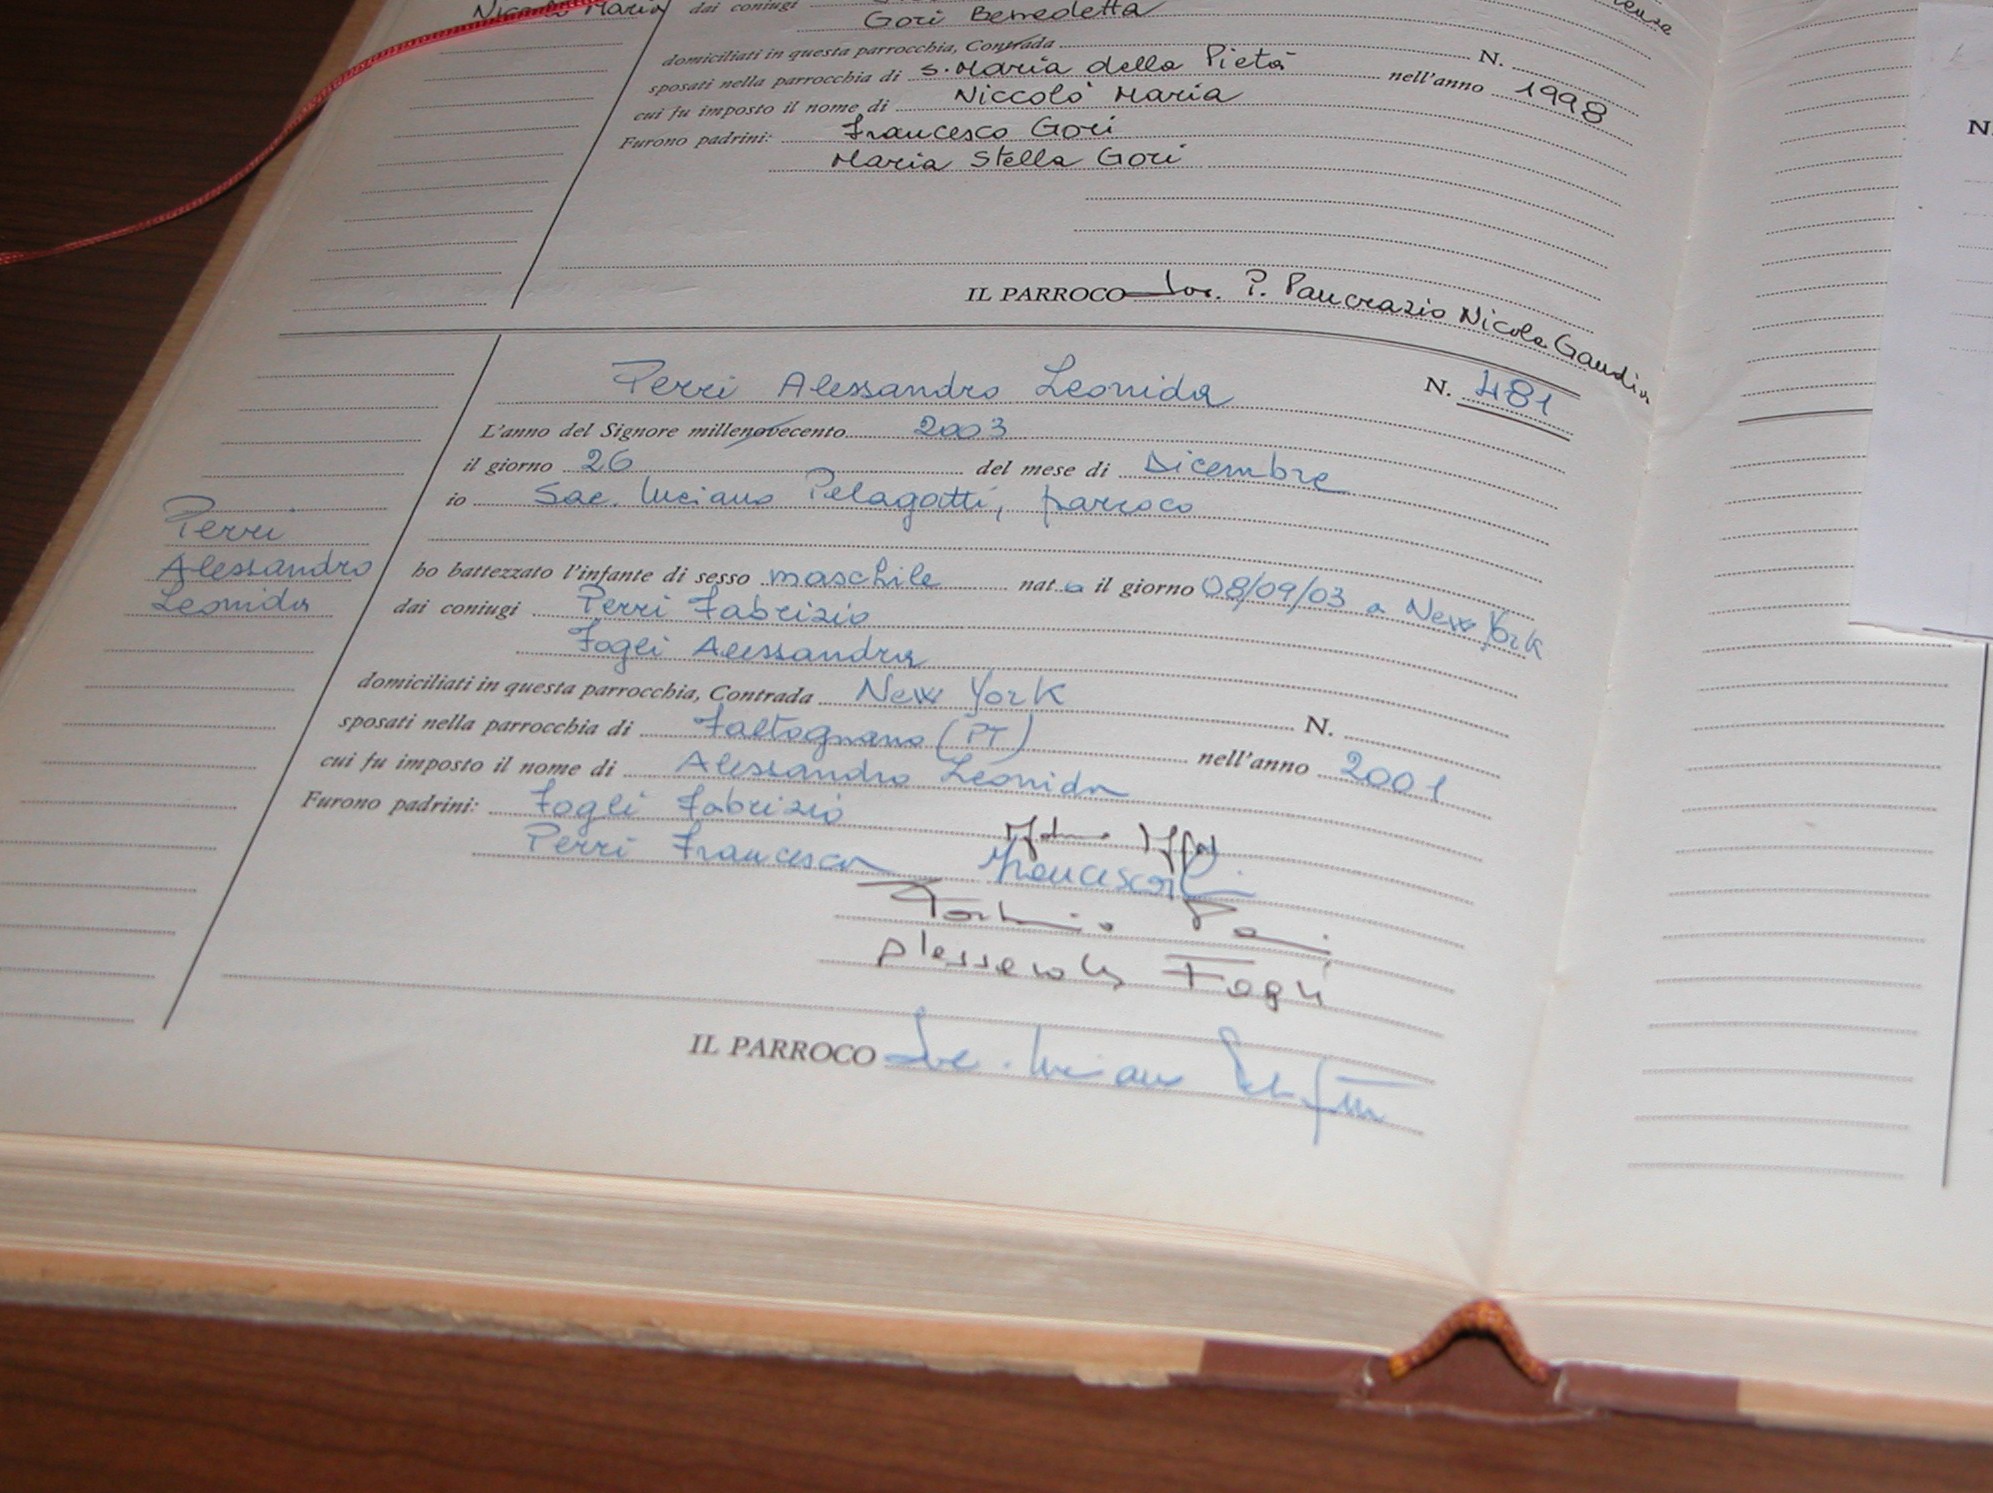 Niccolò Maria dai coniugi
Gori Benedetta
domiciliati in questa parrocchia, Contrada N.
sposati nella parrocchia di S. Maria della Pietà nell'anno 1998
cui fu imposto il nome di Niccolò Maria
Furono padrini: Francesco Gori
Maria Stella Gori
IL PARROCO Sac. P. Pancrazio Nicola Gaudio
Perri Alessandro Leonida N. 481
L'anno del Signore millenovecento 2003
il giorno 26 del mese di Dicembre
io Sac. Luciano Pelagatti, parroco
Perri
Alessandro
Leonida
ho battezzato l'infante di sesso maschile nat o il giorno 08/09/03 a New York
dai coniugi Perri Fabrizio
Fogli Alessandra
domiciliati in questa parrocchia, Contrada New York N.
sposati nella parrocchia di Faltognano (PT) nell'anno 2001
cui fu imposto il nome di Alessandro Leonida
Furono padrini: Fogli Fabrizio
Perri Francesca
Alessandra Fogli
IL PARROCO Sac. Luciano
N.